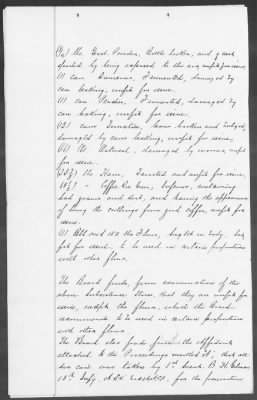 (¾) lbs. Yeast Powder, Bottle broken, and yeast
spoiled by being exposed to the air, unfit for issue.
(1) can Damsons, Fermented, damaged by
can leaking, unfit for issue.
(1) can Peaches, Fermented, damaged by
can leaking, unfit for issue.
(2) cans Tomatoes, Cans broken and bulged,
damaged by cans leaking, unfit for issue.
lbs Oatmeal, damaged by worms, unfit
for issue.
lbs Ham, Tainted and unfit for issue.
" Coffee Rio Green, Inferior, containing
bad grains and dirt, and having the appearance
of being the cullings from good coffee, unfit for
issue.
(1) Bbl and 150 lbs Flour, caked in body,
for issue, to be used in certain proportions
with other flour.
The Board finds, from examination of the
above Subsistence Stores, that they are unfit for
issue, except the flour, which the Board
recommends to be used in certain proportions
with other flour.
The Board also finds from the Affidavit
attached to the Proceedings marked "A", that all
due care was taken by 1st Lieut. B. H.
18th Infy, for the protection